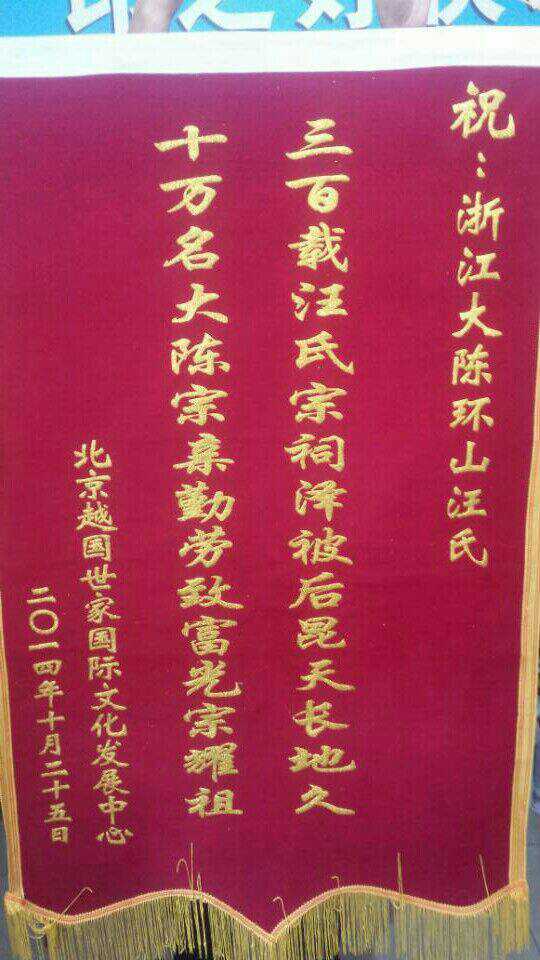 祝：浙江大陈环山汪氏
三百载汪氏宗祠泽被后昆天长地久
十万名大陈宗亲勤劳致富光宗耀祖
北京越国世家国际文化发展中心
二〇一四年十月二十五日